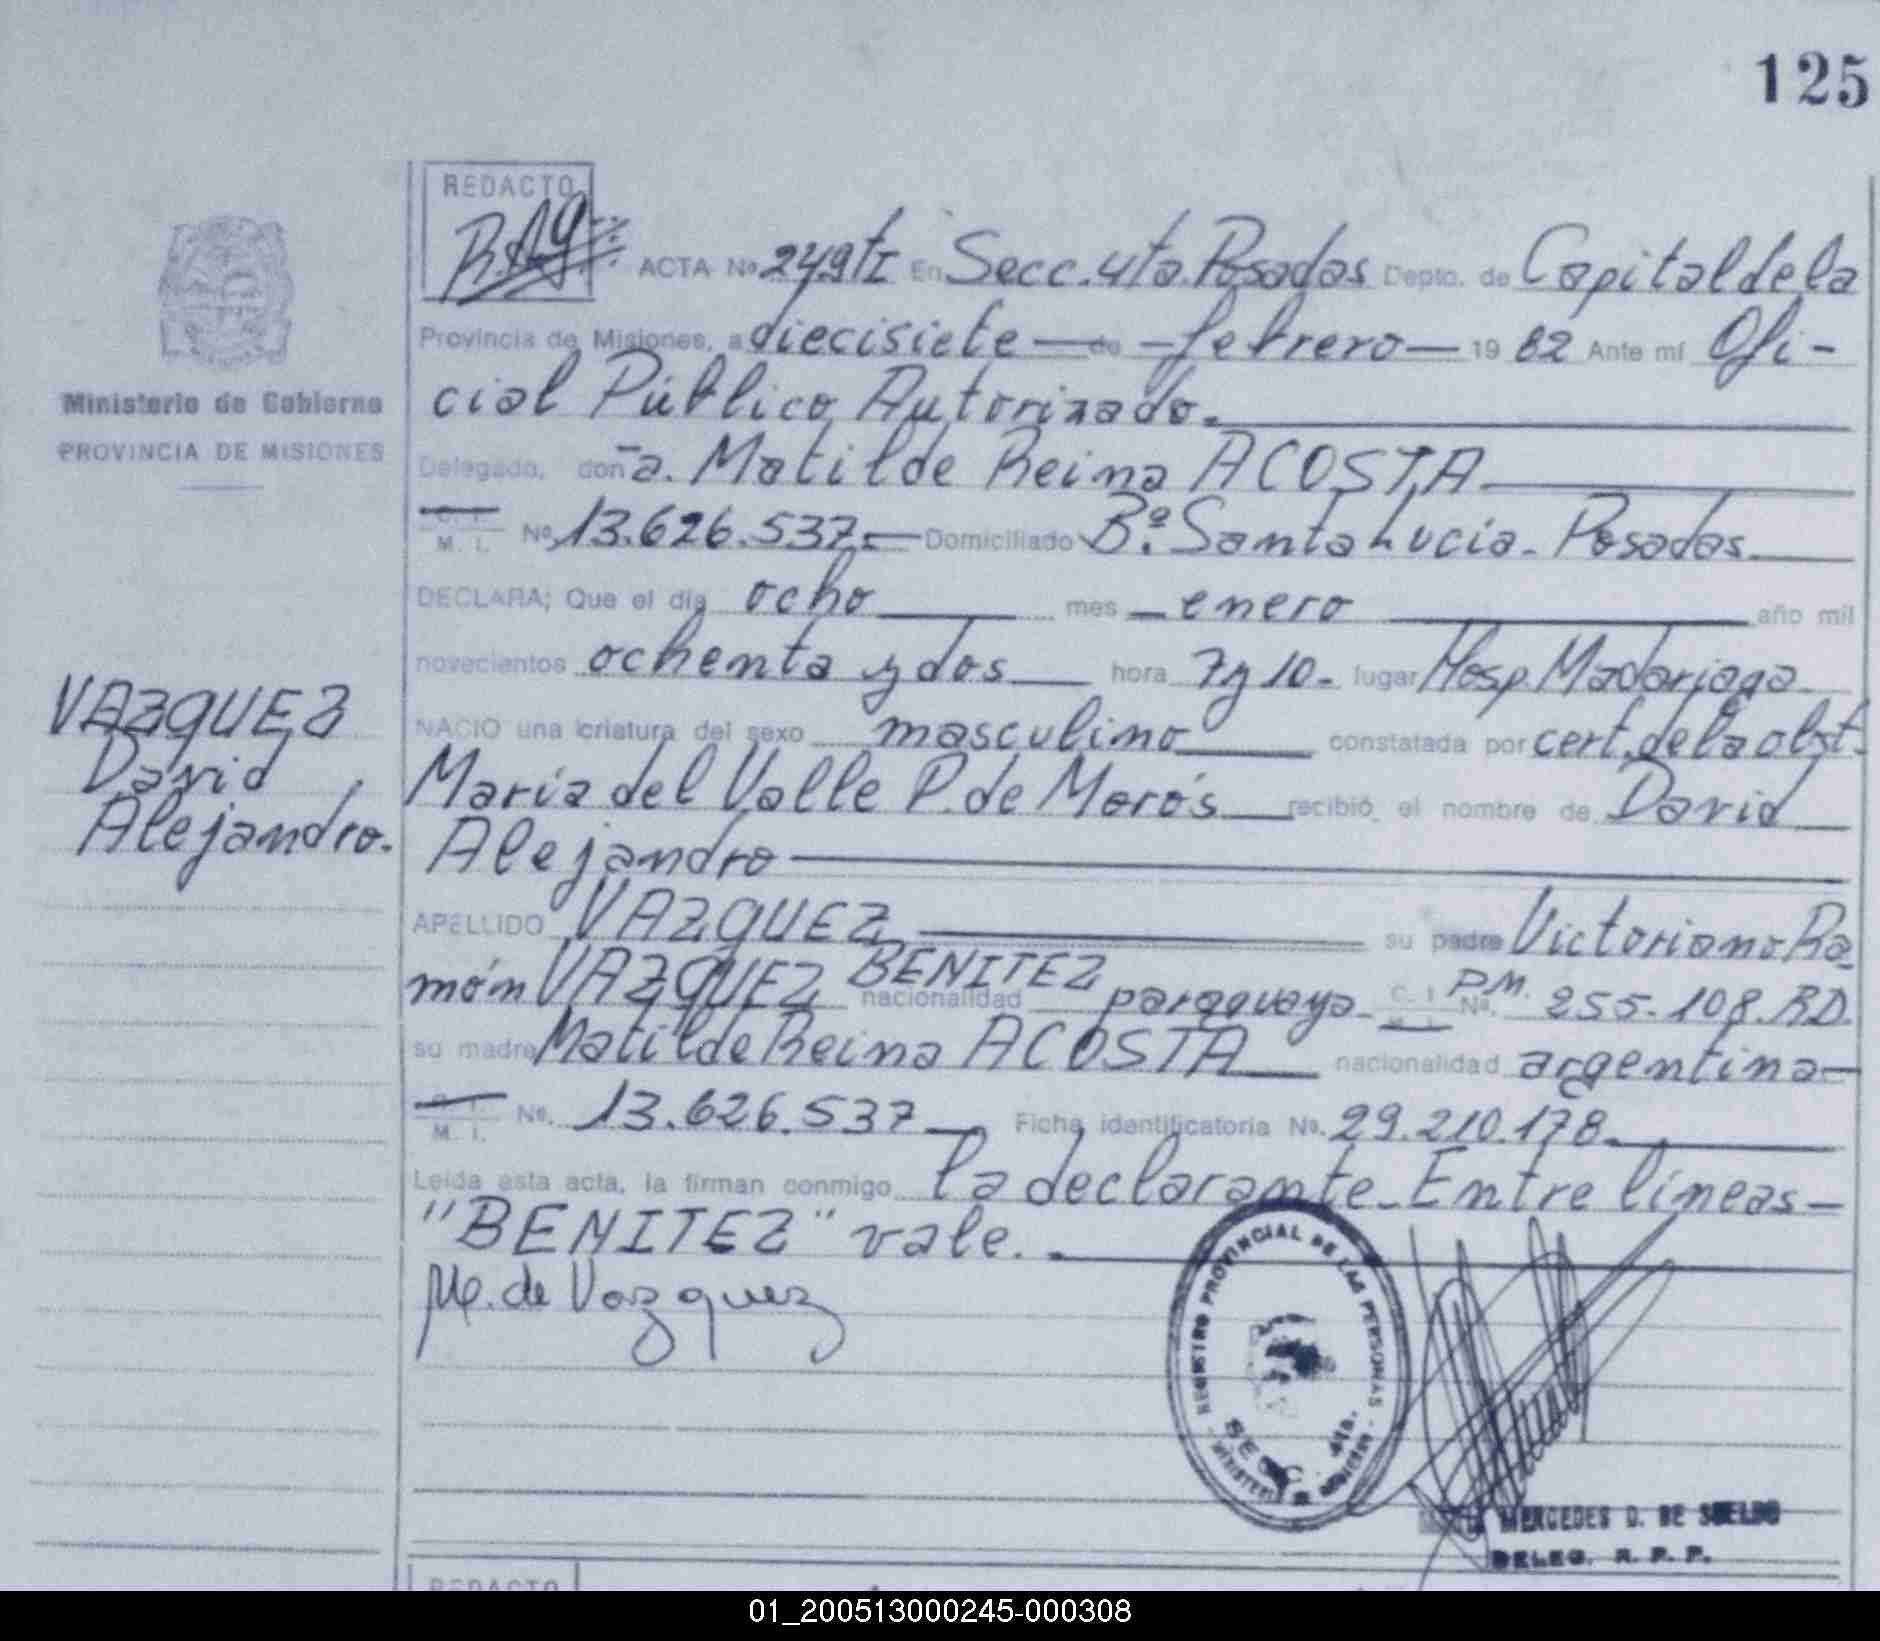 125
REDACTO
ACTA Nº 249 tI En Secc. 4ta. Posadas Depto. de Capital de la
Provincia de Misiones, a diecisiete — de — febrero — 19 82 Ante mí Ofi-
Ministerio de Gobierno
cial Público Autorizado.
PROVINCIA DE MISIONES
Delegado, don-a. Matilde Reina ACOSTA
C. I.
M. I. Nº 13.626.537.- Domiciliado Bº. Santa Lucía - Posadas.
DECLARA; Que el día ocho mes - enero año mil
novecientos ochenta y dos hora 7 y 10.- lugar Hosp. Madariaga
VAZQUEZ
NACIO una criatura del sexo masculino constatada por cert. de la obst.
David
María del Valle P. de Morós recibió el nombre de David
Alejandro.
Alejandro
APELLIDO VAZQUEZ su padre Victoriano Ra-
món VAZQUEZ BENITEZ nacionalidad paraguaya - C. I. P.M. Nº. 255.108.RD.
su madre Matilde Reina ACOSTA nacionalidad argentina-
C. I.
M. I. Nº. 13.626.537 Ficha identificatoria Nº. 29.210.178.
Leída esta acta, la firman conmigo la declarante - Entre líneas -
"BENITEZ" vale.
M. de Vazquez
REGISTRO PROVINCIAL DE LAS PERSONAS
SECC. 4ta.
MERCEDES D. DE SUELDO
DELEG. R. P. P.
REDACTO
01_200513000245-000308